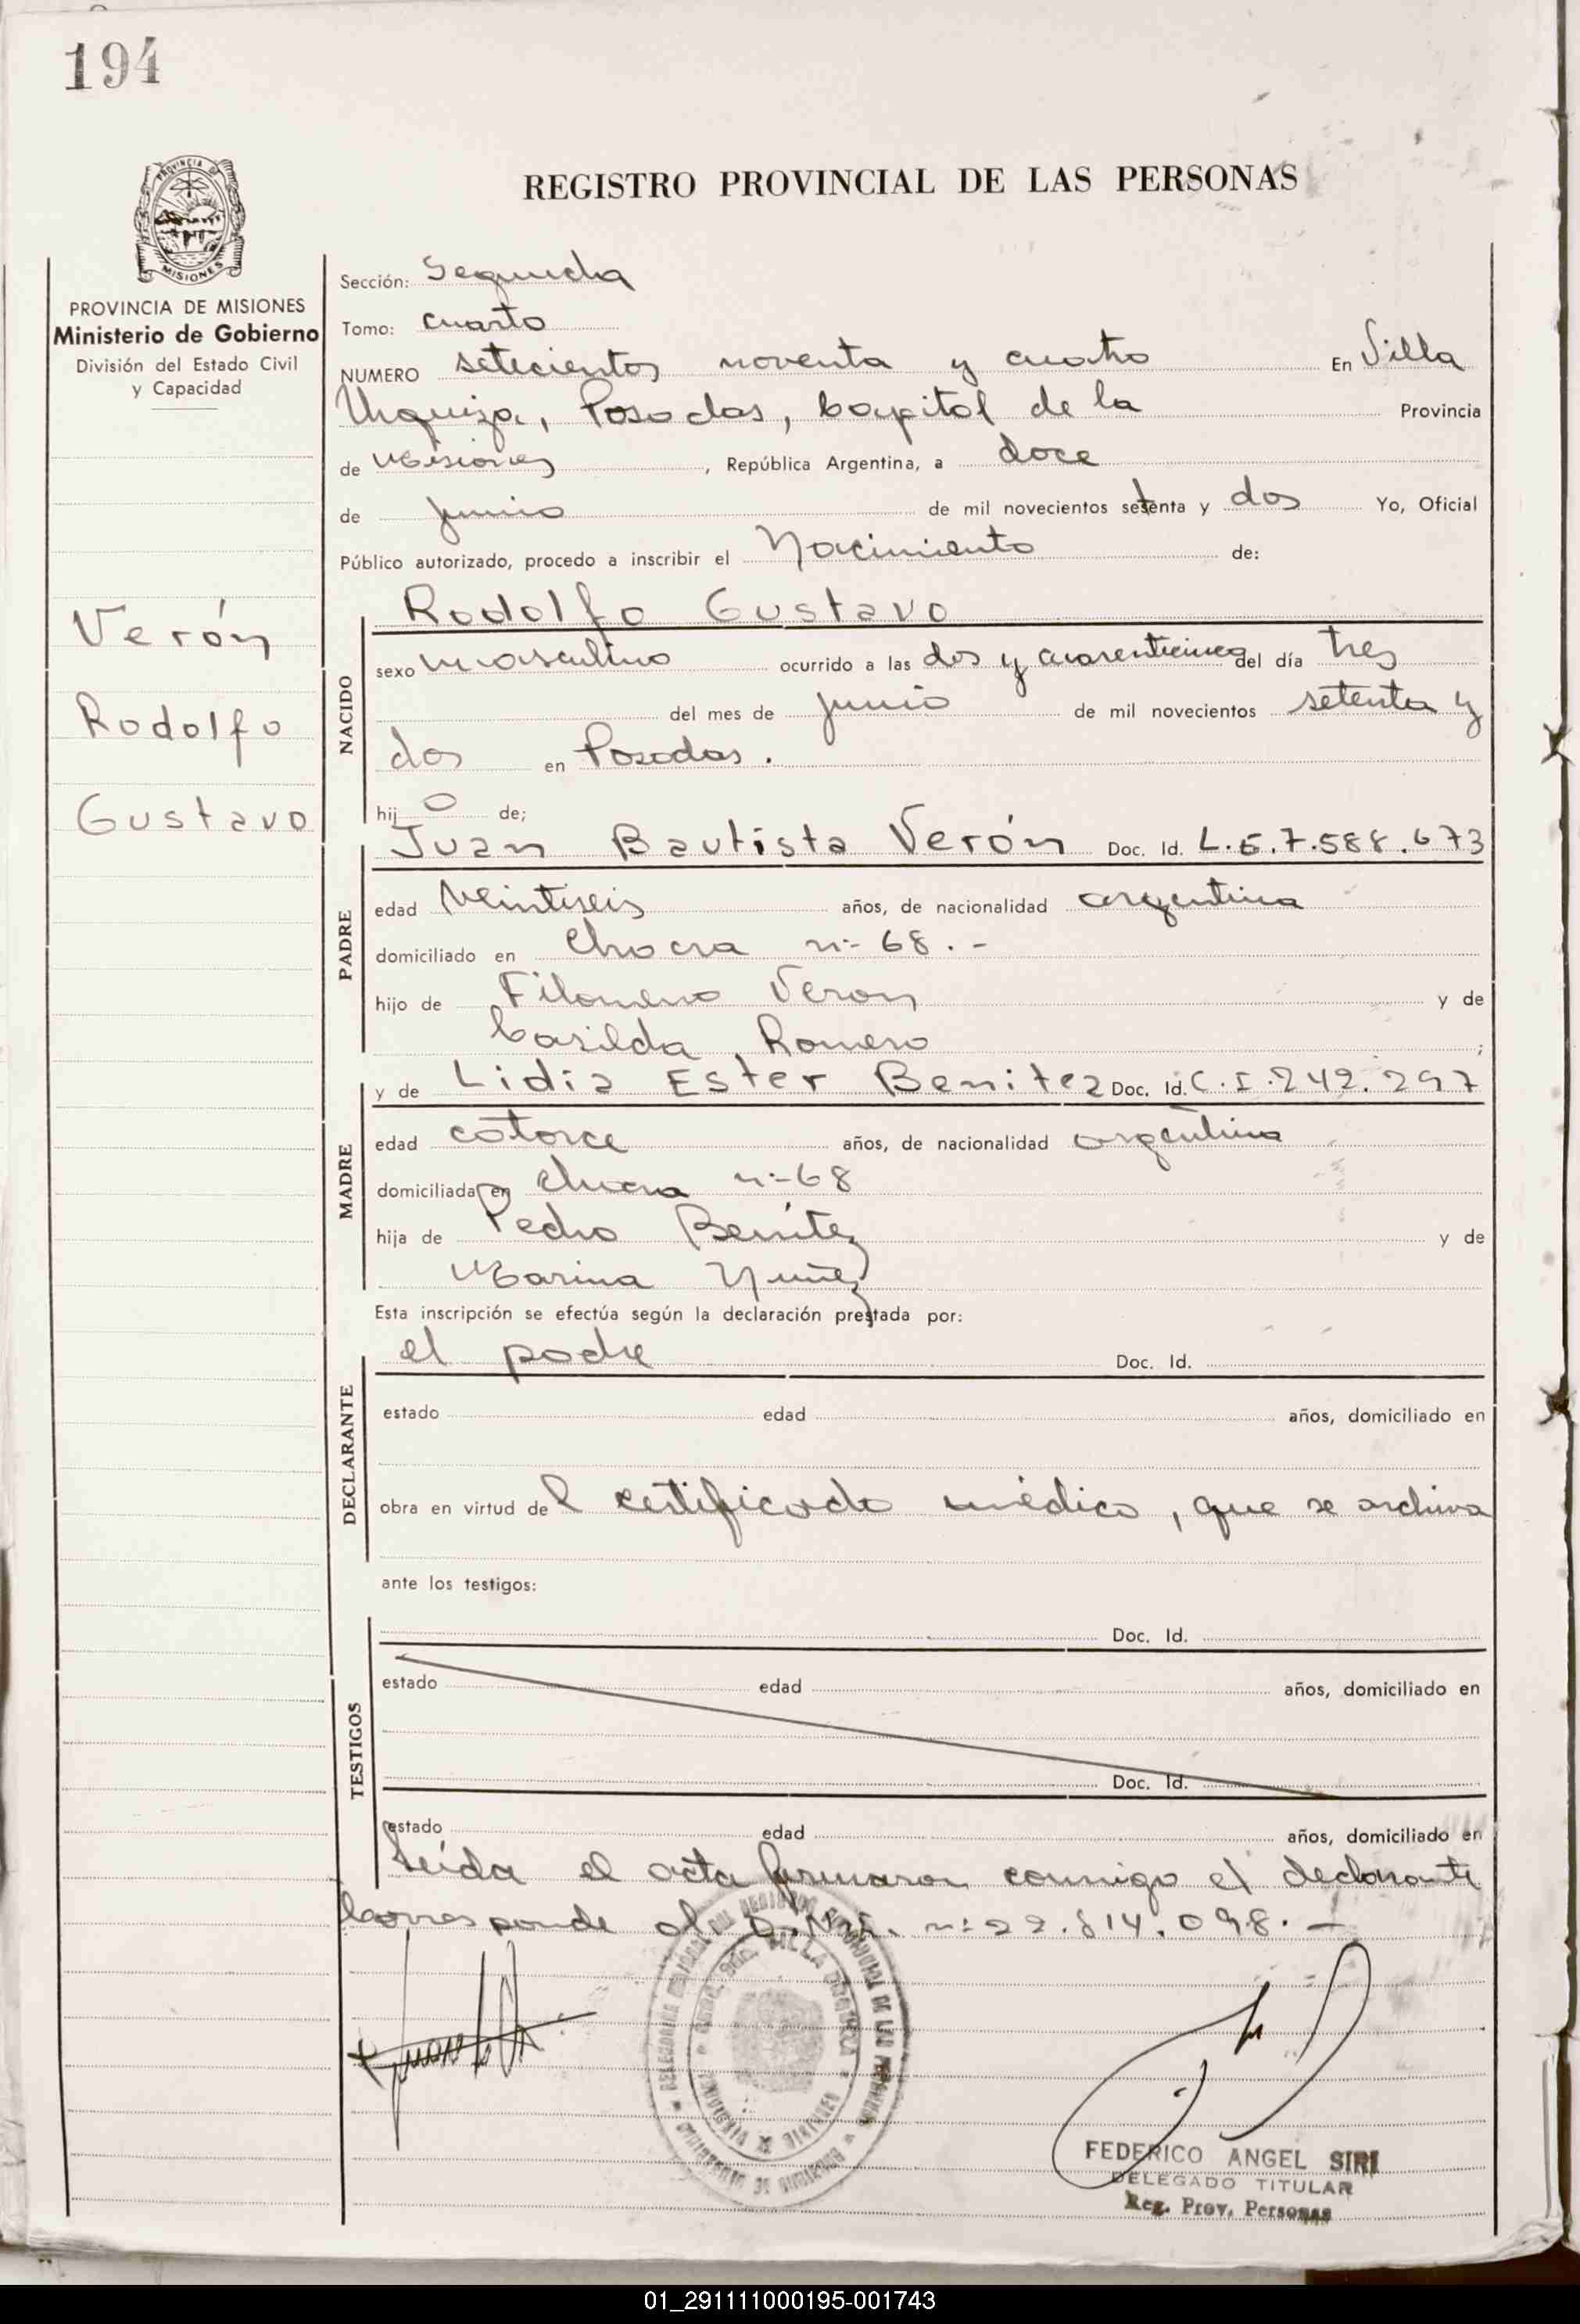 194
PROVINCIA DE
MISIONES
REGISTRO PROVINCIAL DE LAS PERSONAS
PROVINCIA DE MISIONES
Ministerio de Gobierno
División del Estado Civil
y Capacidad
Verón
Rodolfo
Gustavo
Sección: Segunda
Tomo: cuarto
NUMERO setecientos noventa y cuatro En Villa
Urquiza, Posadas, Capital de la Provincia
de Misiones, República Argentina, a doce
de junio de mil novecientos setenta y dos Yo, Oficial
Público autorizado, procedo a inscribir el Nacimiento de:
Rodolfo Gustavo
NACIDO
sexo masculino ocurrido a las dos y cuarenticinco del día tres
del mes de junio de mil novecientos setenta y
dos en Posadas.
hijo de;
Juan Bautista Verón Doc. Id. L.E.7.588.673
PADRE
edad Veintiseis años, de nacionalidad argentina
domiciliado en Chacra nº 68.-
hijo de Filomeno Veron y de
Casilda Romero ;
y de Lidia Ester Benitez Doc. Id. C.I.242.297
MADRE
edad catorce años, de nacionalidad argentina
domiciliada en Chacra nº 68
hija de Pedro Benítez y de
Marina Nuñez
Esta inscripción se efectúa según la declaración prestada por:
el padre Doc. Id.
DECLARANTE
estado edad años, domiciliado en
obra en virtud del certificado médico, que se archiva
ante los testigos:
Doc. Id.
TESTIGOS
estado edad años, domiciliado en
Doc. Id.
estado edad años, domiciliado en
Leída el acta firmaron conmigo el declarante
Corresponde al D.N.I. nº 22.814.098.-
VILLA URQUIZA
PROVINCIA DE MISIONES
FEDERICO ANGEL SIRI
DELEGADO TITULAR
Reg. Prov. Personas
01_291111000195-001743